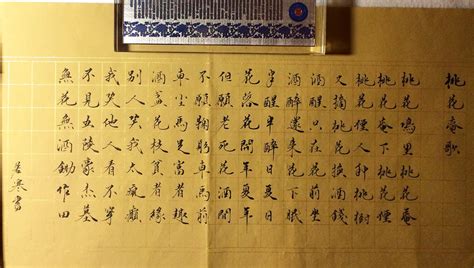 桃花庵歌
桃花塢里桃花庵
桃花庵下桃花僊
桃花僊人种桃樹
又摘桃花換酒錢
酒醒只在花前坐
酒醉還來花下眠
半醒半醉日復日
花落花開年復年
但願老死花酒間
不願鞠躬車馬前
車塵馬足富者趣
酒盞花枝貧者緣
別人笑我太瘋癲
我笑他人看不穿
不見五陵豪傑墓
無花無酒鋤作田
寒書